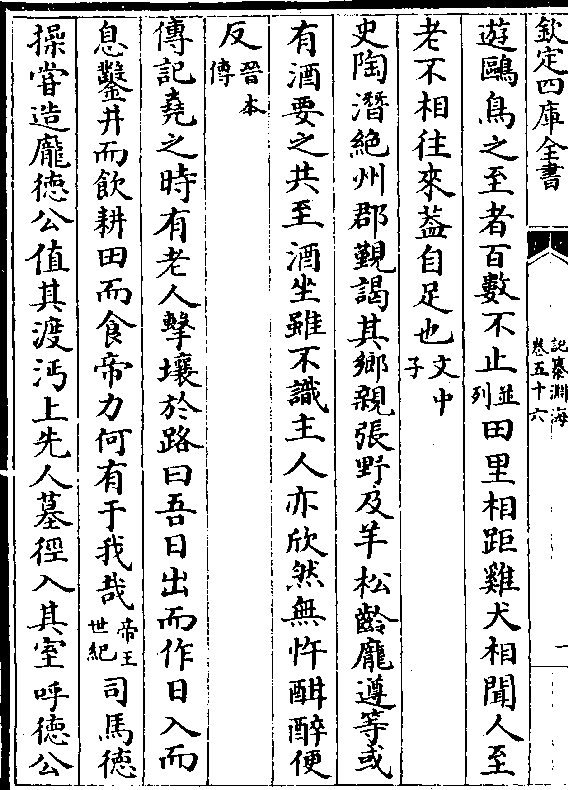 欽定四庫全書
記纂淵海
卷五十六
一
遊鷗鳥之至者百數不止並列田里相距雞犬相聞人至
老不相往來葢自足也文中子
史陶潛絶州郡覲謁其鄉親張野及羊松齡龎遵等或
有酒要之共至酒坐雖不識主人亦欣然無忤酣醉便
反晉本傳
傳記堯之時有老人擊壤於路曰吾日出而作日入而
息鑿井而飲耕田而食帝力何有于我哉帝王世紀司馬德
操嘗造龎德公值其渡沔上先人墓徑入其室呼德公